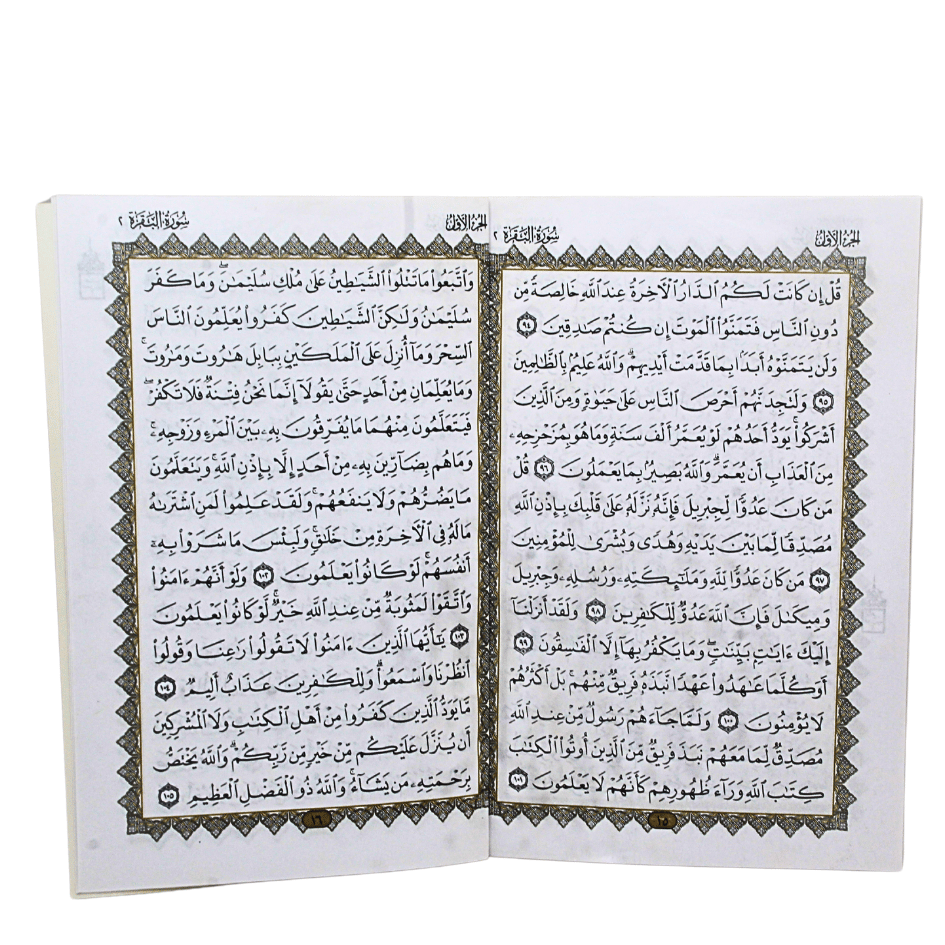 الجزء الأول
سورة البقرة ٢
قُلْ إِن كَانَتْ لَكُمُ ٱلدَّارُ ٱلْأَخِرَةُ عِندَ ٱللَّهِ خَالِصَةً مِّن
دُونِ ٱلنَّاسِ فَتَمَنَّوُا۟ ٱلْمَوْتَ إِن كُنتُمْ صَٰدِقِينَ ٩٤
وَلَن يَتَمَنَّوْهُ أَبَدًۢا بِمَا قَدَّمَتْ أَيْدِيهِمْ ۗ وَٱللَّهُ عَلِيمٌۢ بِٱلظَّٰلِمِينَ
٩٥ وَلَتَجِدَنَّهُمْ أَحْرَصَ ٱلنَّاسِ عَلَىٰ حَيَوٰةٍ وَمِنَ ٱلَّذِينَ
أَشْرَكُوا۟ ۚ يَوَدُّ أَحَدُهُمْ لَوْ يُعَمَّرُ أَلْفَ سَنَةٍ وَمَا هُوَ بِمُزَحْزِحِهِۦ
مِنَ ٱلْعَذَابِ أَن يُعَمَّرَ ۗ وَٱللَّهُ بَصِيرٌۢ بِمَا يَعْمَلُونَ ٩٦ قُلْ
مَن كَانَ عَدُوًّا لِّجِبْرِيلَ فَإِنَّهُۥ نَزَّلَهُۥ عَلَىٰ قَلْبِكَ بِإِذْنِ ٱللَّهِ
مُصَدِّقًا لِّمَا بَيْنَ يَدَيْهِ وَهُدًى وَبُشْرَىٰ لِلْمُؤْمِنِينَ
٩٧ مَن كَانَ عَدُوًّا لِّلَّهِ وَمَلَٰٓئِكَتِهِۦ وَرُسُلِهِۦ وَجِبْرِيلَ
وَمِيكَىٰلَ فَإِنَّ ٱللَّهَ عَدُوٌّ لِّلْكَٰفِرِينَ ٩٨ وَلَقَدْ أَنزَلْنَآ
إِلَيْكَ ءَايَٰتٍۭ بَيِّنَٰتٍ ۖ وَمَا يَكْفُرُ بِهَآ إِلَّا ٱلْفَٰسِقُونَ ٩٩
أَوَكُلَّمَا عَٰهَدُوا۟ عَهْدًا نَّبَذَهُۥ فَرِيقٌ مِّنْهُم ۚ بَلْ أَكْثَرُهُمْ
لَا يُؤْمِنُونَ ١٠٠ وَلَمَّا جَآءَهُمْ رَسُولٌ مِّنْ عِندِ ٱللَّهِ
مُصَدِّقٌ لِّمَا مَعَهُمْ نَبَذَ فَرِيقٌ مِّنَ ٱلَّذِينَ أُوتُوا۟ ٱلْكِتَٰبَ
كِتَٰبَ ٱللَّهِ وَرَآءَ ظُهُورِهِمْ كَأَنَّهُمْ لَا يَعْلَمُونَ ١٠١
١٥
الجزء الأول
سورة البقرة ٢
وَٱتَّبَعُوا۟ مَا تَتْلُوا۟ ٱلشَّيَٰطِينُ عَلَىٰ مُلْكِ سُلَيْمَٰنَ ۖ وَمَا كَفَرَ
سُلَيْمَٰنُ وَلَٰكِنَّ ٱلشَّيَٰطِينَ كَفَرُوا۟ يُعَلِّمُونَ ٱلنَّاسَ
ٱلسِّحْرَ وَمَآ أُنزِلَ عَلَى ٱلْمَلَكَيْنِ بِبَابِلَ هَٰرُوتَ وَمَٰرُوتَ ۚ
وَمَا يُعَلِّمَانِ مِنْ أَحَدٍ حَتَّىٰ يَقُولَآ إِنَّمَا نَحْنُ فِتْنَةٌ فَلَا تَكْفُرْ ۖ
فَيَتَعَلَّمُونَ مِنْهُمَا مَا يُفَرِّقُونَ بِهِۦ بَيْنَ ٱلْمَرْءِ وَزَوْجِهِۦ ۚ
وَمَا هُم بِضَآرِّينَ بِهِۦ مِنْ أَحَدٍ إِلَّا بِإِذْنِ ٱللَّهِ ۚ وَيَتَعَلَّمُونَ
مَا يَضُرُّهُمْ وَلَا يَنفَعُهُمْ ۚ وَلَقَدْ عَلِمُوا۟ لَمَنِ ٱشْتَرَىٰهُ
مَا لَهُۥ فِى ٱلْأَخِرَةِ مِنْ خَلَٰقٍ ۚ وَلَبِئْسَ مَا شَرَوْا۟ بِهِۦٓ
أَنفُسَهُمْ ۚ لَوْ كَانُوا۟ يَعْلَمُونَ ١٠٢ وَلَوْ أَنَّهُمْ ءَامَنُوا۟
وَٱتَّقَوْا۟ لَمَثُوبَةٌ مِّنْ عِندِ ٱللَّهِ خَيْرٌ ۖ لَّوْ كَانُوا۟ يَعْلَمُونَ
١٠٣ يَٰٓأَيُّهَا ٱلَّذِينَ ءَامَنُوا۟ لَا تَقُولُوا۟ رَٰعِنَا وَقُولُوا۟
ٱنظُرْنَا وَٱسْمَعُوا۟ ۗ وَلِلْكَٰفِرِينَ عَذَابٌ أَلِيمٌ ١٠٤
مَّا يَوَدُّ ٱلَّذِينَ كَفَرُوا۟ مِنْ أَهْلِ ٱلْكِتَٰبِ وَلَا ٱلْمُشْرِكِينَ
أَن يُنَزَّلَ عَلَيْكُم مِّنْ خَيْرٍ مِّن رَّبِّكُمْ ۗ وَٱللَّهُ يَخْتَصُّ
بِرَحْمَتِهِۦ مَن يَشَآءُ ۚ وَٱللَّهُ ذُو ٱلْفَضْلِ ٱلْعَظِيمِ ١٠٥
١٦